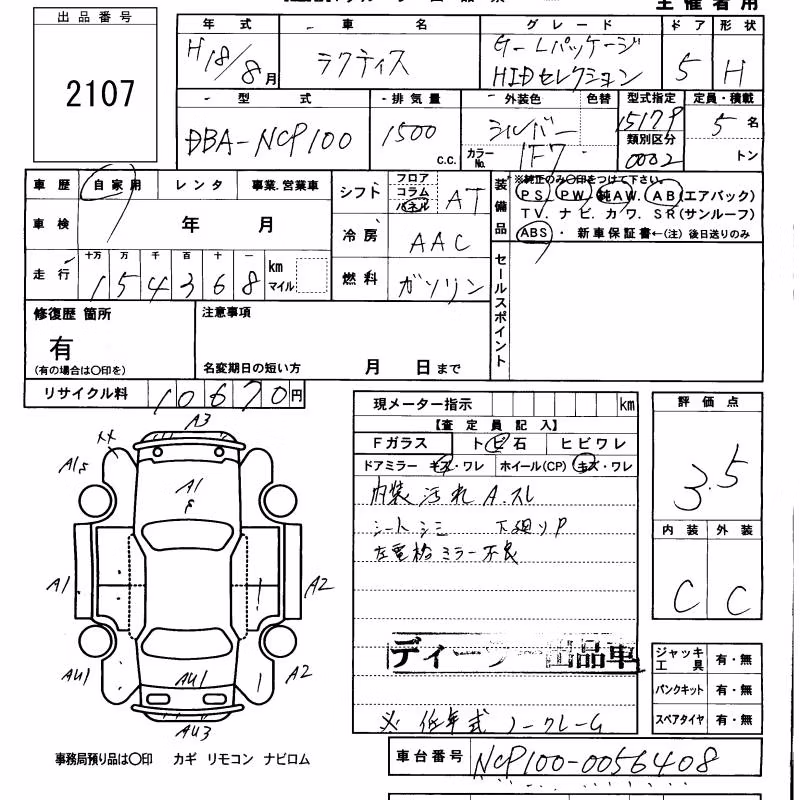 主催者用
出品番号
2107
年式 車名 グレード ドア 形状
H18/8月 ラクティス G-Lパッケージ HIDセレクション 5 H
型式 排気量 外装色 色替 型式指定 定員・積載
DBA-NCP100 1500 c.c. シルバー 15179 5名
カラーNo. 1F7 類別区分 0002 トン
車歴 自家用 レンタ 事業.営業車
車検 年 月
走行 十万 万 千 百 十 一 km マイル
154368
シフト フロア コラム パネル AT
冷房 AAC
燃料 ガソリン
装備品 ※純正のみ〇印をつけて下さい。
PS. PW. 純AW. AB(エアバック)
TV. ナビ. カワ. SR(サンルーフ)
ABS・ 新車保証書←(注) 後日送りのみ
セールスポイント
修復歴 箇所
有
(有の場合は〇印を)
注意事項
名変期日の短い方 月 日まで
リサイクル料 10670円
現メーター指示 km
【査定員記入】
Fガラス トビ石 ヒビワレ
ドアミラー キズ・ワレ ホイール(CP) キズ・ワレ
内装汚れ A.スレ
シートシミ 下廻りP
左電格ミラー不良
ディーラー出品車
※ 低年式 ノークレーム
評価点
3.5
内装 外装
C C
ジャッキ工具 有・無
パンクキット 有・無
スペアタイヤ 有・無
A3
XX
A1s
A1
F
A1
A2
AU1
AU1
A2
AU3
事務局預り品は〇印 カギ リモコン ナビロム
車台番号 NCP100-0056408